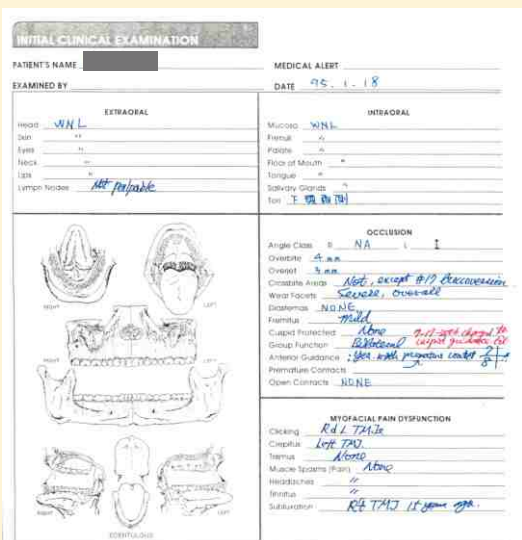 INITIAL CLINICAL EXAMINATION
PATIENT'S NAME
MEDICAL ALERT
EXAMINED BY
DATE 95.1.18
EXTRAORAL
Head WNL
Skin "
Eyes "
Neck "
Lips "
Lymph Nodes Not palpable
INTRAORAL
Mucosa WNL
Frenuli "
Palate "
Floor of Mouth "
Tongue "
Salivary Glands "
Tori 下顎兩側
RIGHT
LEFT
RIGHT
LEFT
RIGHT
LEFT
EDENTULOUS
OCCLUSION
Angle Class R NA L I
Overbite 4 mm
Overjet 3 mm
Crossbite Areas Not, except #17 Buccoversion
Wear Facets Severe, overall
Diastemas NONE
Fremitus mild
Cuspid Protected None
Group Function Bilateral
cuspid guidance
Anterior Guidance : Yes. with premature contact
Premature Contacts
Open Contacts NONE
MYOFACIAL PAIN DYSFUNCTION
Clicking R d L TMJs
Crepitus Left TMJ.
Trismus None
Muscle Spasms (Pain) None
Headaches "
Tinnitus "
Subluxation Rt TMJ 15 years ago.